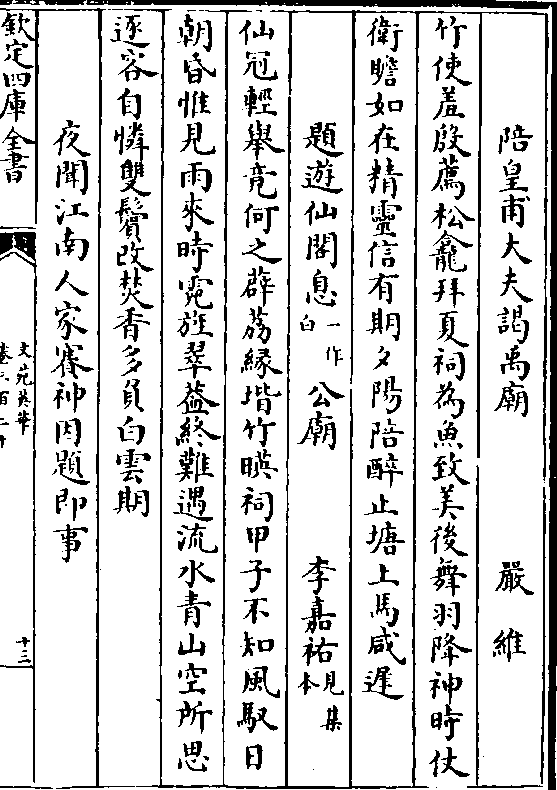 陪皇甫大夫謁禹廟　嚴維
竹使羞殷薦松龕拜夏祠為魚致美後舞羽降神時仗
衛瞻如在精靈信有期夕陽陪醉止塘上馬咸遲
題遊仙閣息一作白公廟　李嘉祐見集本
仙冠輕舉竟何之薜荔緣堦竹暎祠甲子不知風馭日
朝昏惟見雨來時霓旌翠葢終難遇流水青山空所思
逐客自憐雙鬢改焚香多負白雲期
夜聞江南人家賽神因題即事
欽定四庫全書
文苑英華
十三